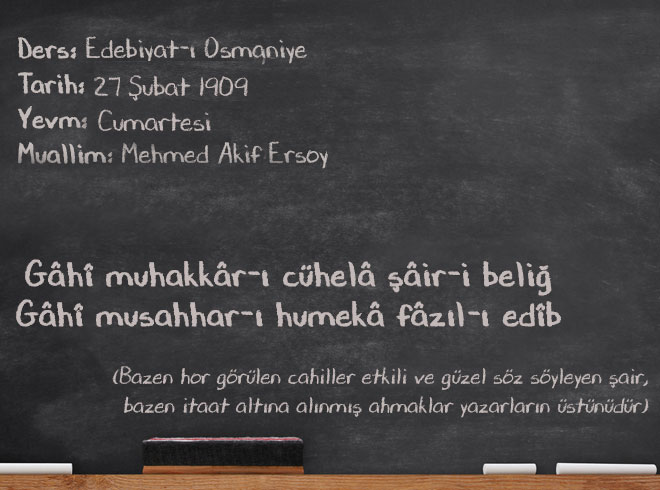 Ders: Edebiyat-ı Osmaniye
Tarih: 27 Şubat 1909
Yevm: Cumartesi
Muallim: Mehmed Akif Ersoy
Gâhî muhakkâr-ı cühelâ şâir-i beliğ
Gâhî musahhar-ı humekâ fâzıl-ı edîb
(Bazen hor görülen cahiller etkili ve güzel söz söyleyen şair,
bazen itaat altına alınmış ahmaklar yazarların üstünüdür)